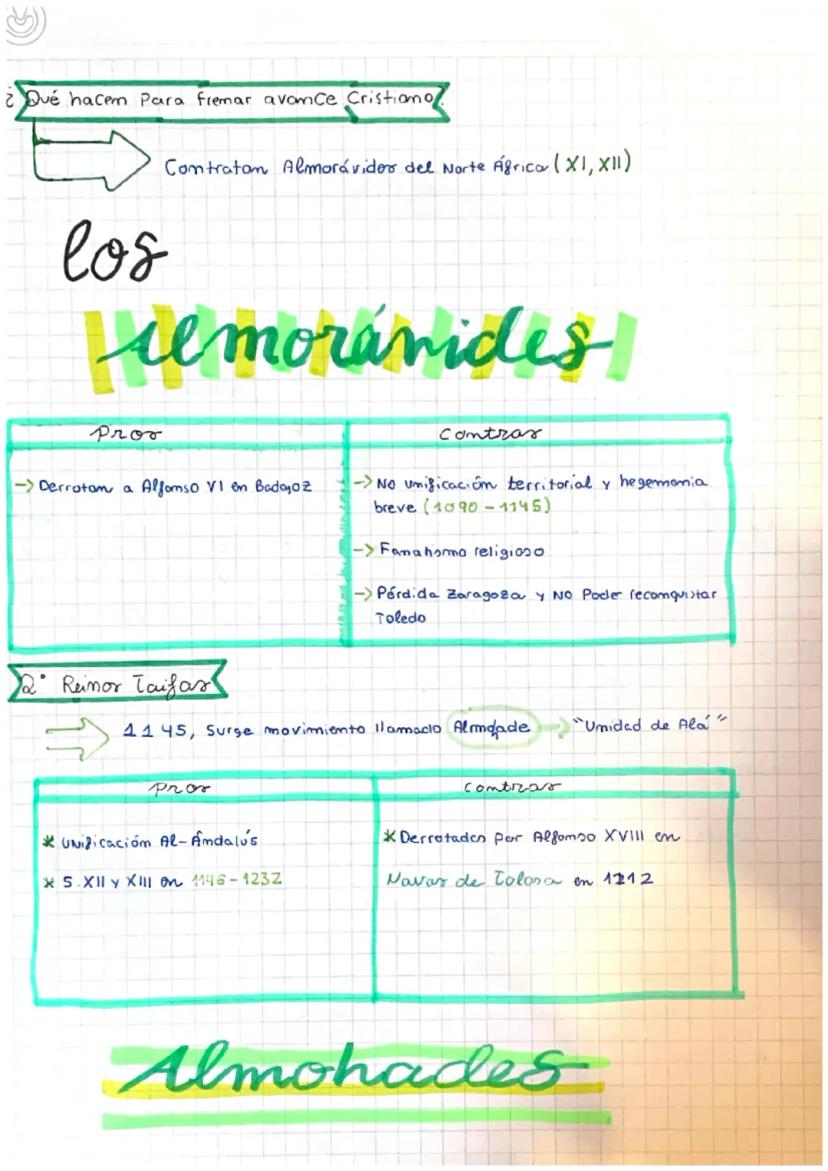 ¿Qué hacen Para frenar avance Cristiano?
Contratan Almorávides del Norte África (XI, XII)
los
almorávides
Pros
contras
-> Derrotan a Alfonso VI en Badajoz
-> No unificación territorial y hegemonia
breve (1090-1145)
-> Fanatismo religioso
-> Pérdida Zaragoza y NO Poder reconquistar
Toledo
2° Reinos Taifas
1145, Surge movimiento llamado Almohade -> "Unidad de Alá"
Pros
contras
* Unificación Al-Ándalús
* S.XII y XIII en 1146-1232
* Derrotados por Alfonso XVIII en
Navas de Tolosa en 1212
Almohades